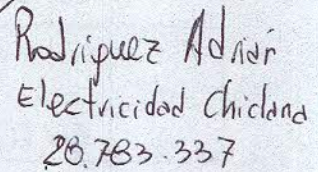 Rodriguez Adrian
Electricidad Chiclana
28.783.337